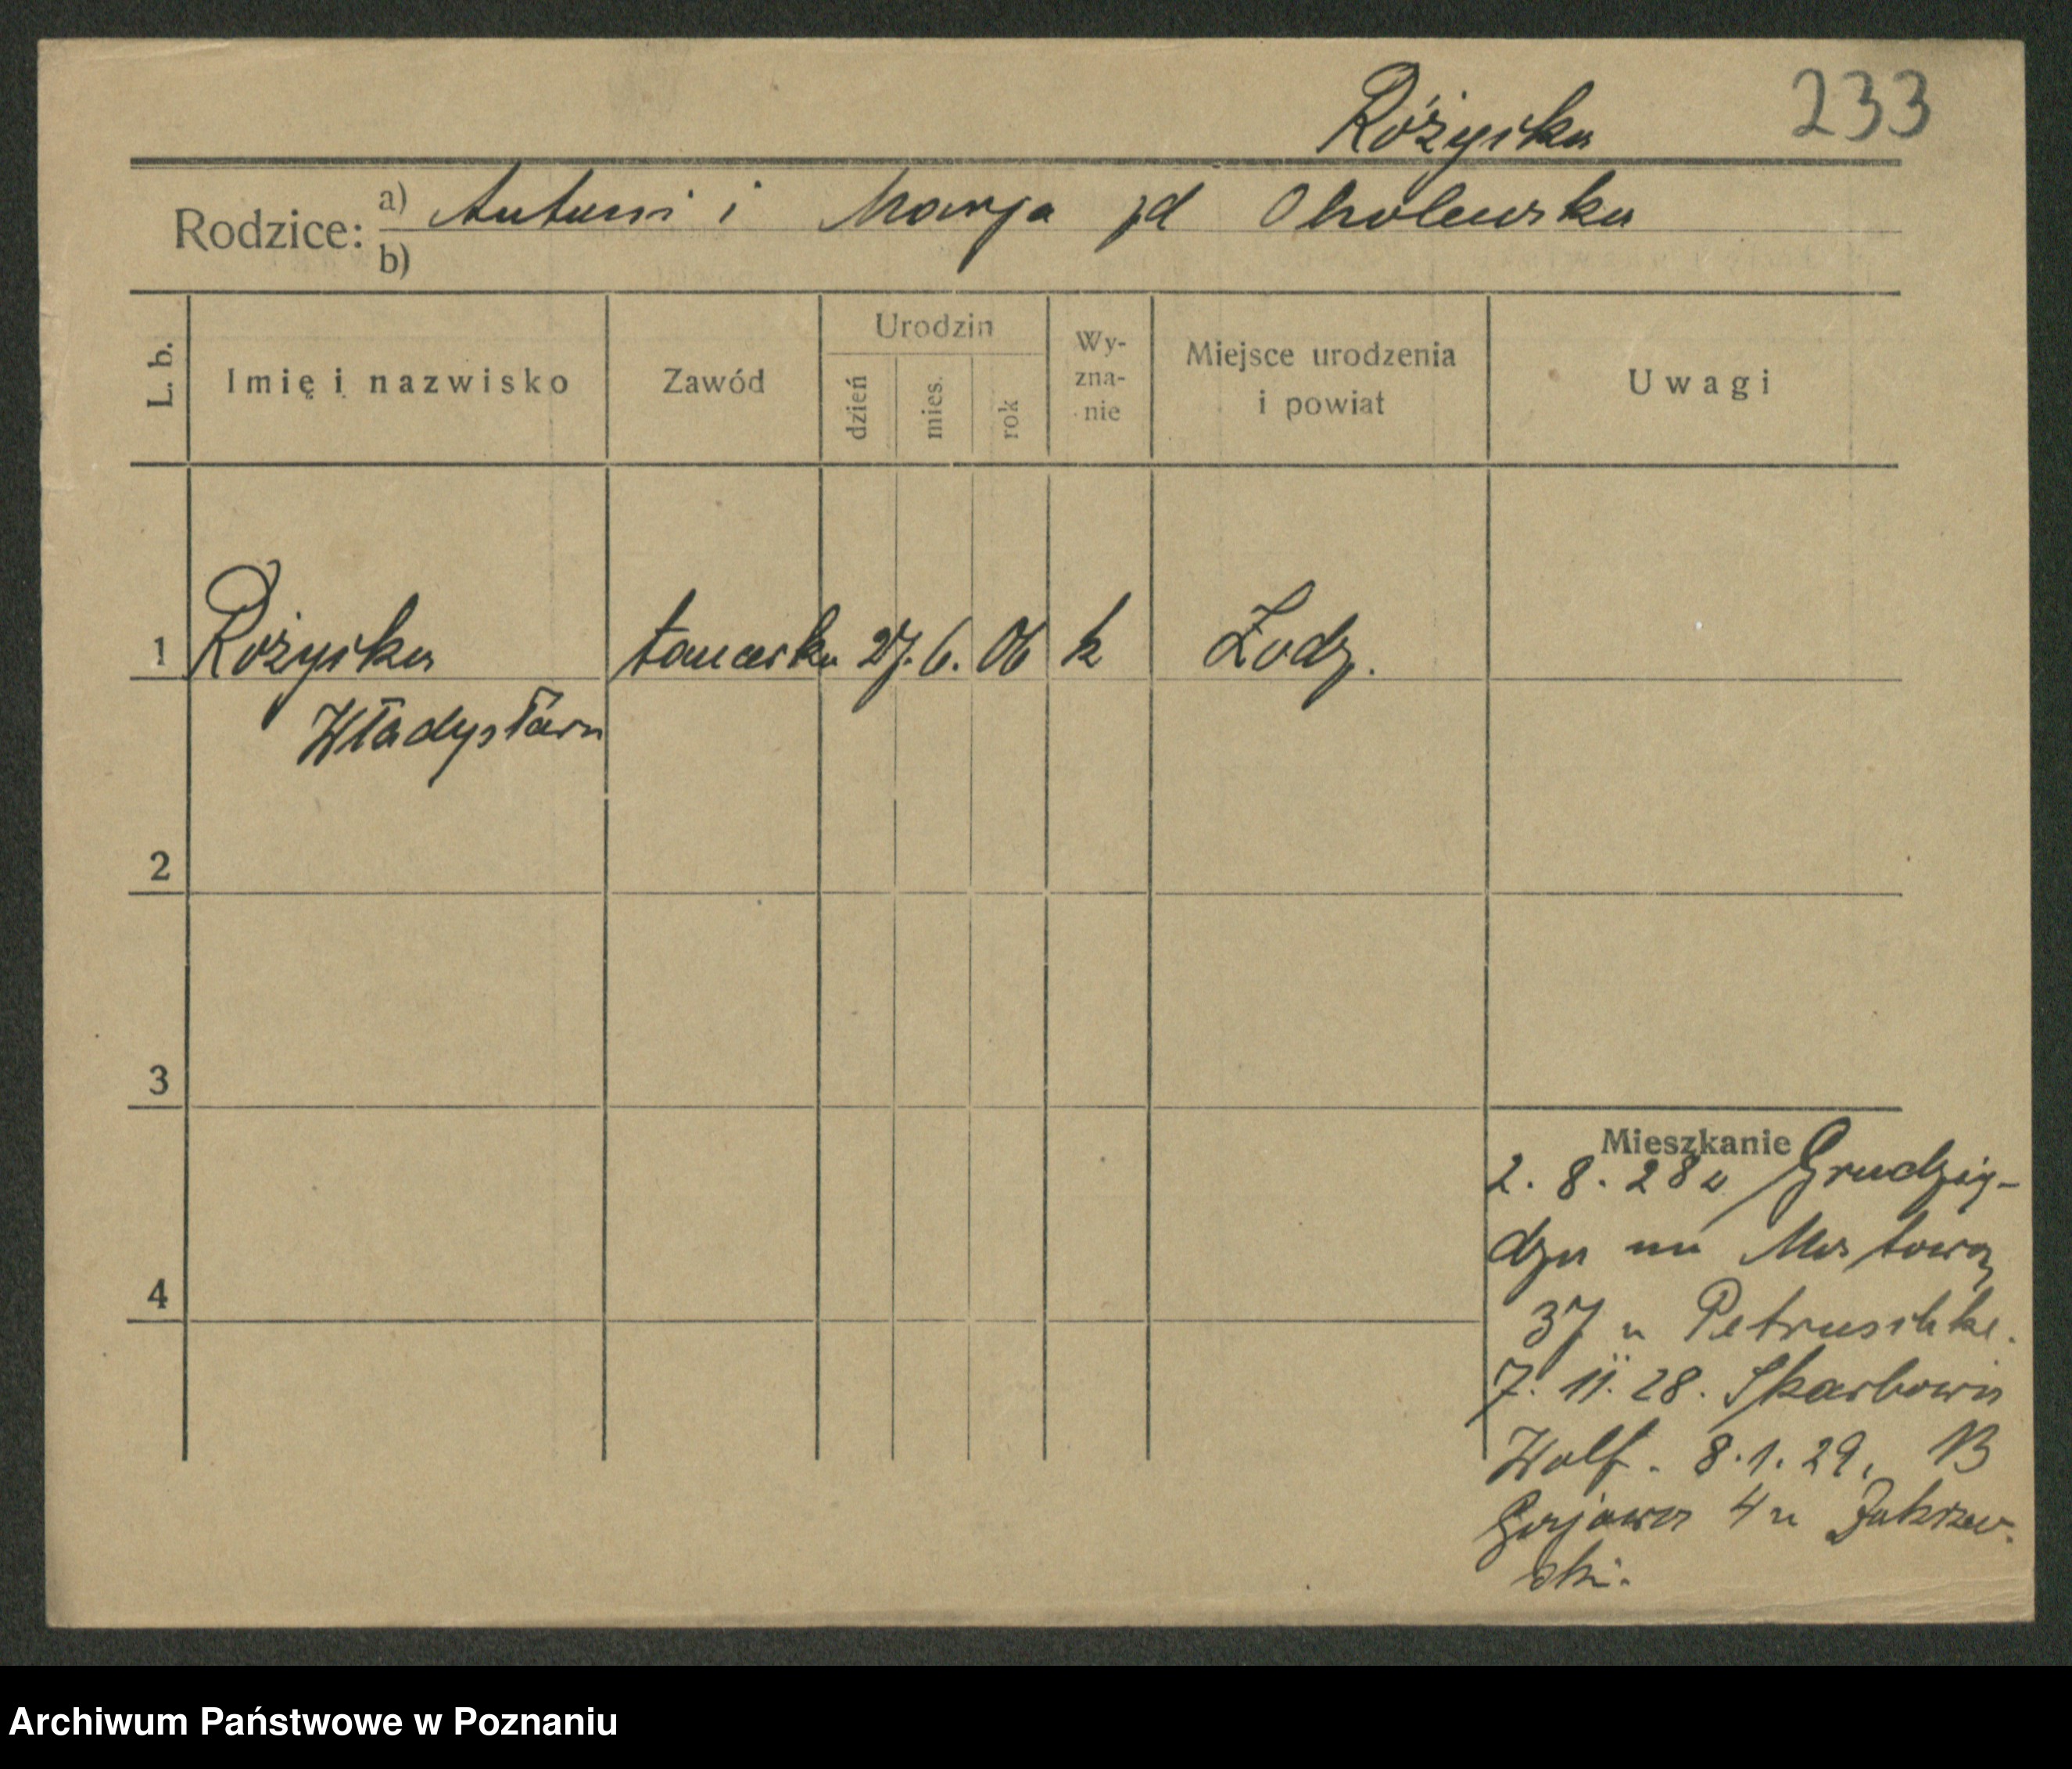 Różyska 233
Rodzice: a) Antoni i Marja zd Cholewska
b)
L. b. Imię i nazwisko Zawód Urodzin dzień mies. rok Wy-zna-nie Miejsce urodzenia i powiat Uwagi
1 Różyska tancerka 27. 6. 06 k Łodz.
Władysława
2
3
Mieszkanie
2. 8. 28 z Grudzią-
dza na Mostową
4
37 u Petruschke.
7. 11. 28. Skarbowa
Wolf. 8. 1. 29. B
4 u Zakrzew-
ski.
Archiwum Państwowe w Poznaniu